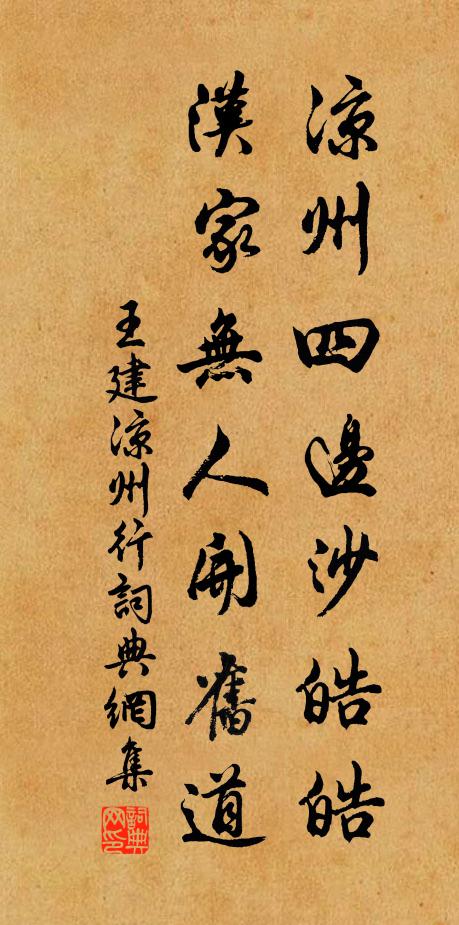 涼州四邊沙皓皓
漢家無人開舊道
王建涼州行詞典網集
詞典网印